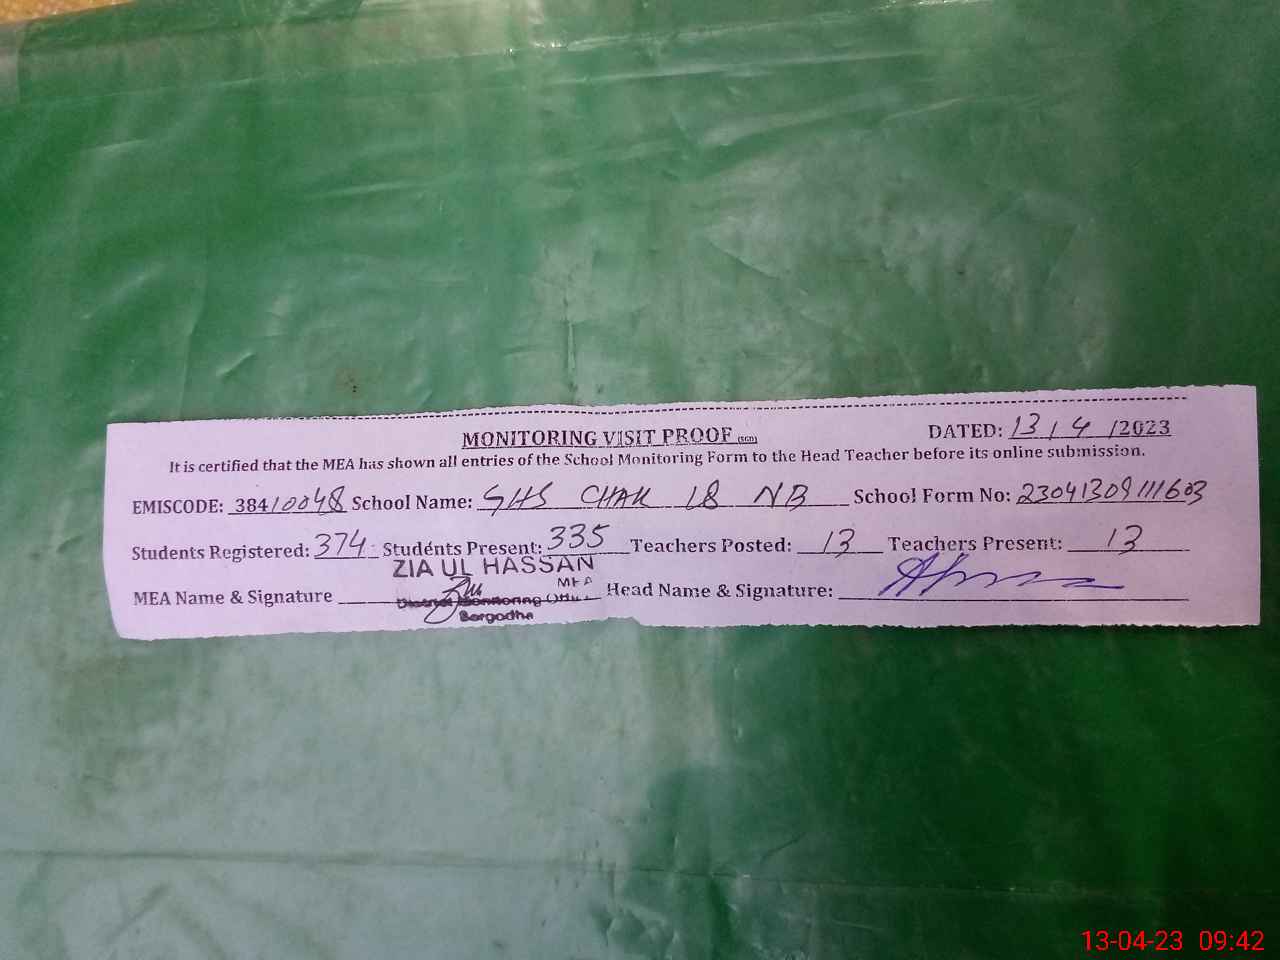 MONITORING VISIT PROOF (SGD) DATED: 13/4/2023
It is certified that the MEA has shown all entries of the School Monitoring Form to the Head Teacher before its online submission.
EMISCODE: 38410048 School Name: GHS CHAK 18 NB School Form No: 23041309111603
Students Registered: 374 Students Present: 335 Teachers Posted: 13 Teachers Present: 13
ZIA UL HASSAN
MEA
MEA Name & Signature Head Name & Signature:
District Monitoring
Sargodha
13-04-23 09:42